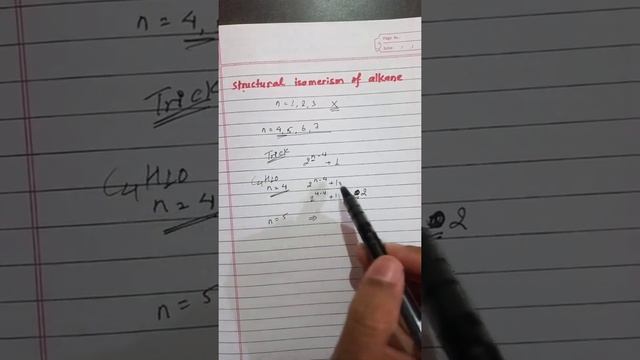 Page No.
Date
Structural isomerism of alkane
n = 1, 2, 3 X
n = 4, 5, 6, 7
Trick
2^{n-4} + 1
C4H10
n = 4 2^{n-4} + 1
2^{4-4} + 1 2
n = 5 ⇒